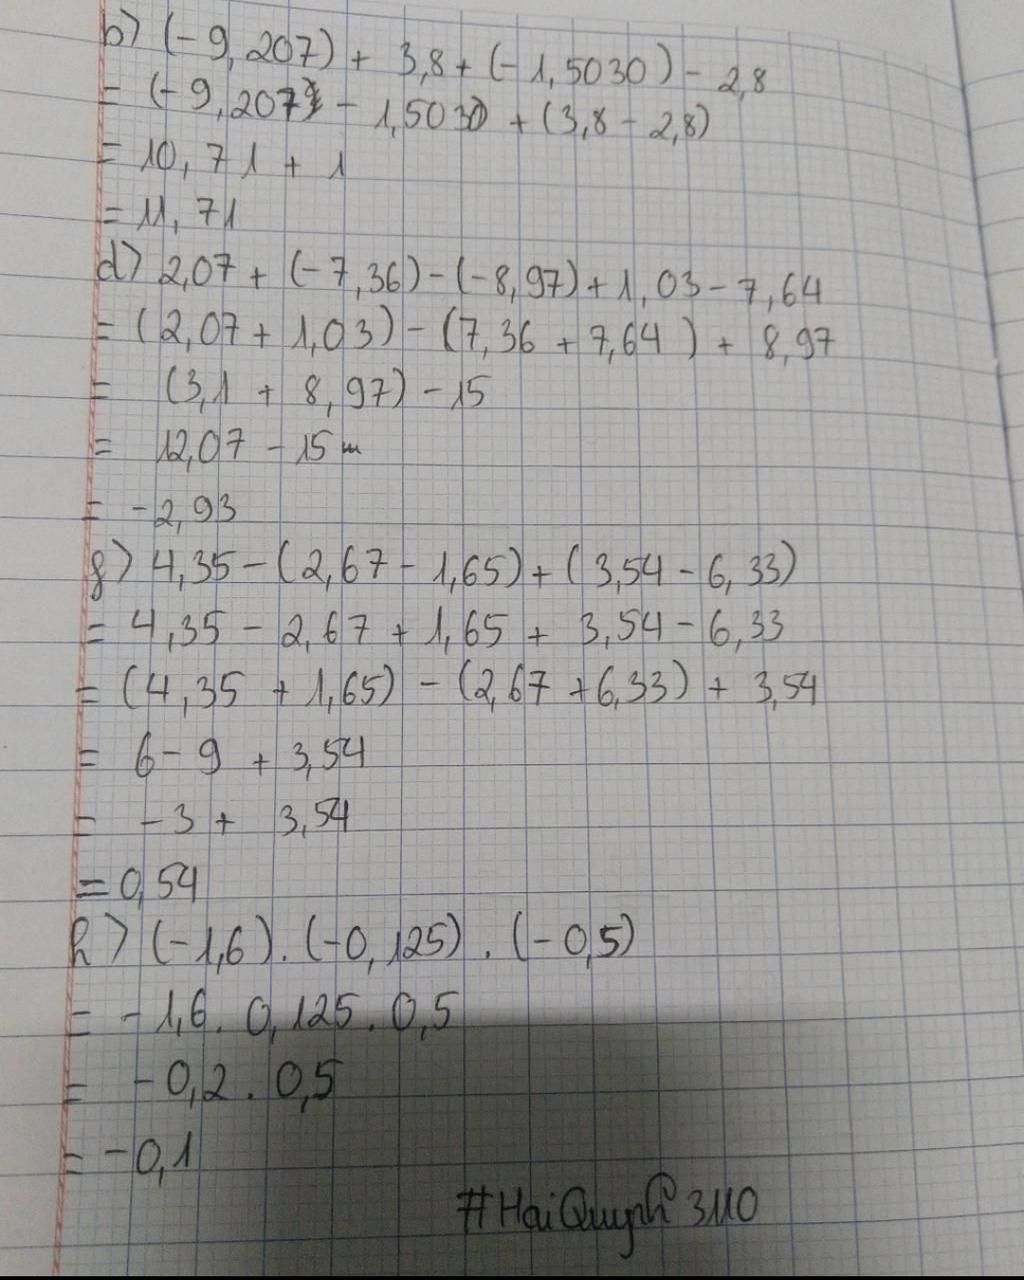 b) (-9,207) + 3,8 + (-1,5030) - 2,8
= (-9,207 - 1,503) + (3,8 - 2,8)
= 10,71 + 1
= 11,71
d) 2,07 + (-7,36) - (-8,97) + 1,03 - 7,64
= (2,07 + 1,03) - (7,36 + 7,64) + 8,97
= (3,1 + 8,97) - 15
= 12,07 - 15
= -2,93
g) 4,35 - (2,67 - 1,65) + (3,54 - 6,33)
= 4,35 - 2,67 + 1,65 + 3,54 - 6,33
= (4,35 + 1,65) - (2,67 + 6,33) + 3,54
= 6 - 9 + 3,54
= -3 + 3,54
= 0,54
h) (-1,6) . (-0,125) . (-0,5)
= -1,6 . 0,125 . 0,5
= -0,2 . 0,5
= -0,1
#HaiQuynh3110